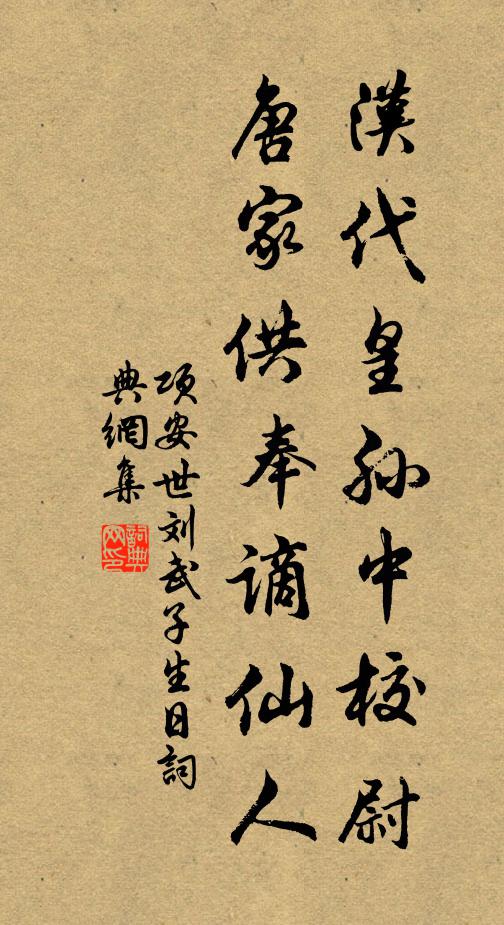 漢代皇孫中校尉
唐家供奉謫仙人
项安世刘武子生日詞
典網集
詞典網印